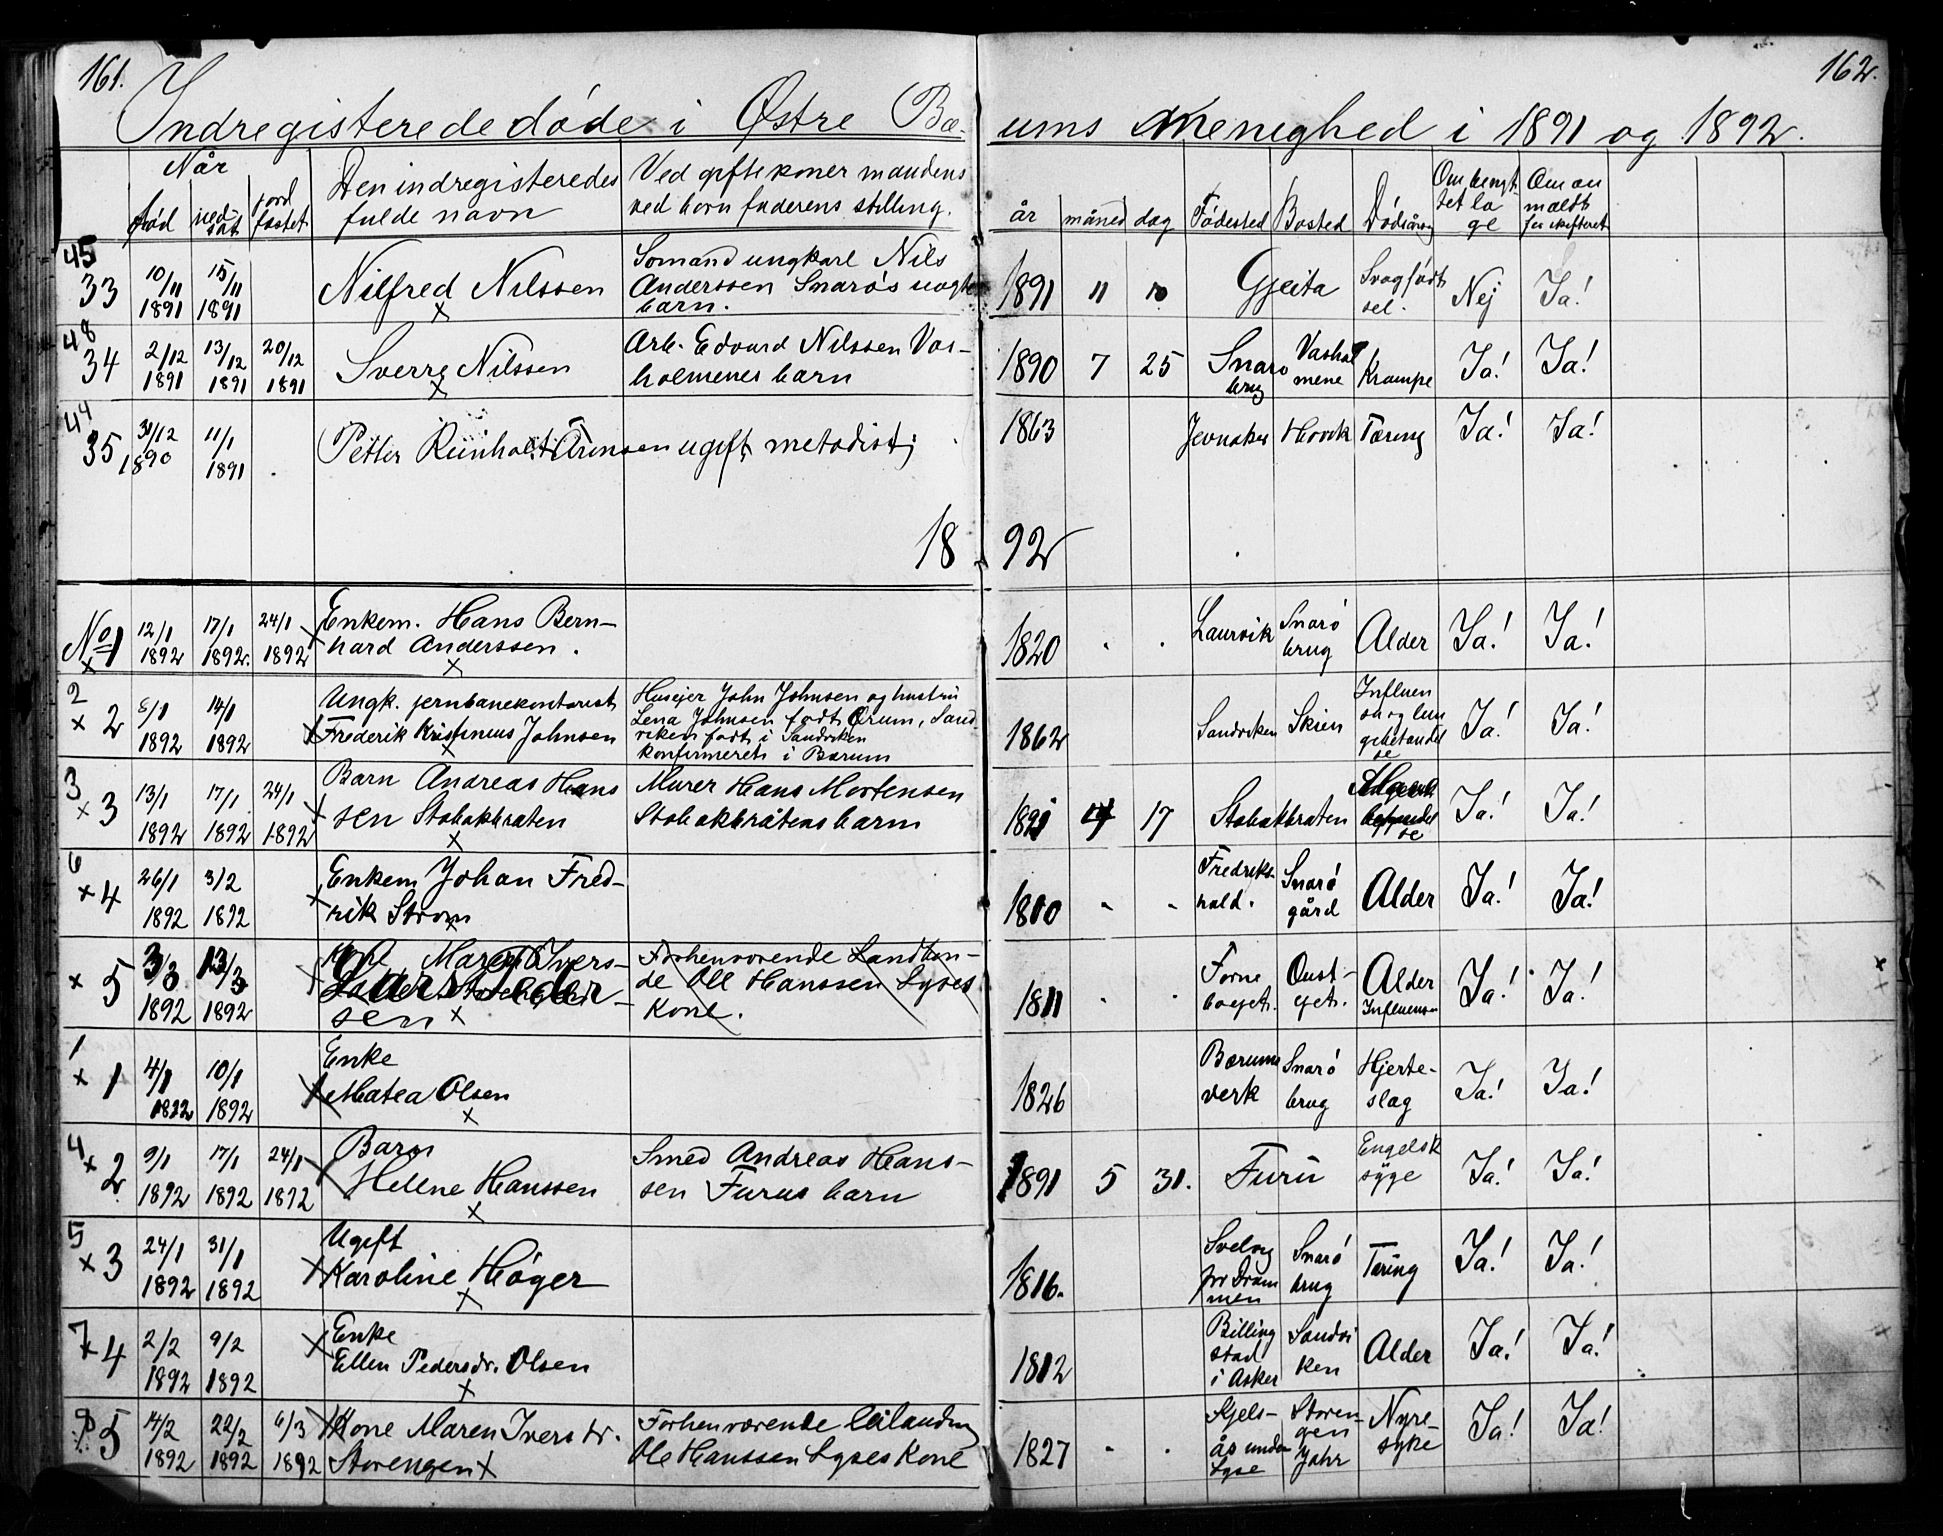 161.
162.
Indregisterede døde i Østre Bæ-
ums Menighed i 1891 og 1892.
Når
død
ned-
sat
jord
fæstet
Den indregisteredes
fulde navn
Ved gifte koner mandens
ved børn faderens stilling.
år
måned
dag
Fødested
Bosted
Dødsårsag
Om
age
Om an
mældt
45
33
10/11
1891
15/11
1891
Nilfred Nilssen
Sømand ungkarl Nils
Anderssen Snarø's uægte
barn.
1891
11
10
Gjeita
Svagføds
sel.
Nej
Ja!
48
34
2/12
1891
13/12
1891
20/12
1891
Sverre Nilssen
Arb. Edvard Nilssen Vas-
holmenes barn
1890
7
25
Snarø
brug
Vashol
mene
Krampe
Ja!
Ja!
44
35
31/12
1890
11/1
1891
Petter Reinholt Arensen ugift metodist;
1863
Jevnaker
Høvik
Tæring
Ja!
Ja!
18 92
No 1
12/1
1892
17/1
1892.
24/1
1892
Enkem. Hans Bern-
hard Anderssen.
1820
Laurvik
Snarø
brug
Alder
Ja!
Ja!
2
x 2
5/1
1892
14/1
1892
Ungk. jernbanekontorist
Frederik Kristinius Johnsen
Husejer John Johnsen og hustru
Lena Johnsen født Ørum, Sand
viken født i Sandviken
konfirmeret i Bærum
1862
Sandviken
Skien
Influen
sa og lun
gebetændel
se
Ja!
Ja!
3
x 3
13/1
1892
17/1
1892
24/1
1892
Barn Andreas Hans
sen Stabakbraten
Murer Hans Mortensen
Stabakbråtens barn
1891
17
Stabakbraten
Ja!
Ja!
6
x 4
26/1
1892
3/2
1892
Enkem Johan Fred-
rik Strøm
1810
Fredriks-
hald.
Snarø
gård
Alder
Ja!
Ja!
x 5
3/3
1892
13/3
1892
Kone Maren Ivers-
sen
Forhenværende Landbon-
de Ole Hanssen Lyses
Kone.
1811
Forne
boget.
Oust-
get.
Alder
Influensa
Ja!
Ja!
1
x 1
4/1
1892
10/1
1892
Enke
Matea Olsen
1826
Bærums
verk
Snarø
brug
Hjerte-
slag
Ja!
Ja!
4
x 2
9/1
1892
17/1
1892
24/1
1892
Barn
Hellne Hanssen
Smed Andreas Hans-
sen Furus barn
1891
5
31.
Furu
Engelsk
syge
Ja!
Ja!
5
x 3
24/1
1892
31/1
1892
Ugift
Karoline Høger
1816.
Svelvig
for Dram
men
Snarø
brug
Tæring
Ja!
Ja!
7
x 4
2/2
1892
9/2
1892
Enke
Ellen Pedersdr. Olsen
1812
Billing
stad
i Asker
Sandvi
ken
Alder
Ja!
Ja!
5
14/2
1892
22/2
1892
6/3
1892
Kone Maren Iversdr.
Storengen
Forhenværende leilænding
Ole Hanssen Lyses Kone
1827
Kjels-
ås under
Lyse
Storen-
gen
Jahr
Nyre-
syke
Ja!
Ja!